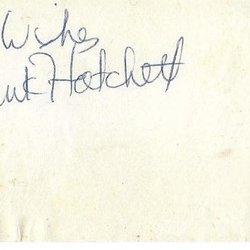 Wishes
Hatchett